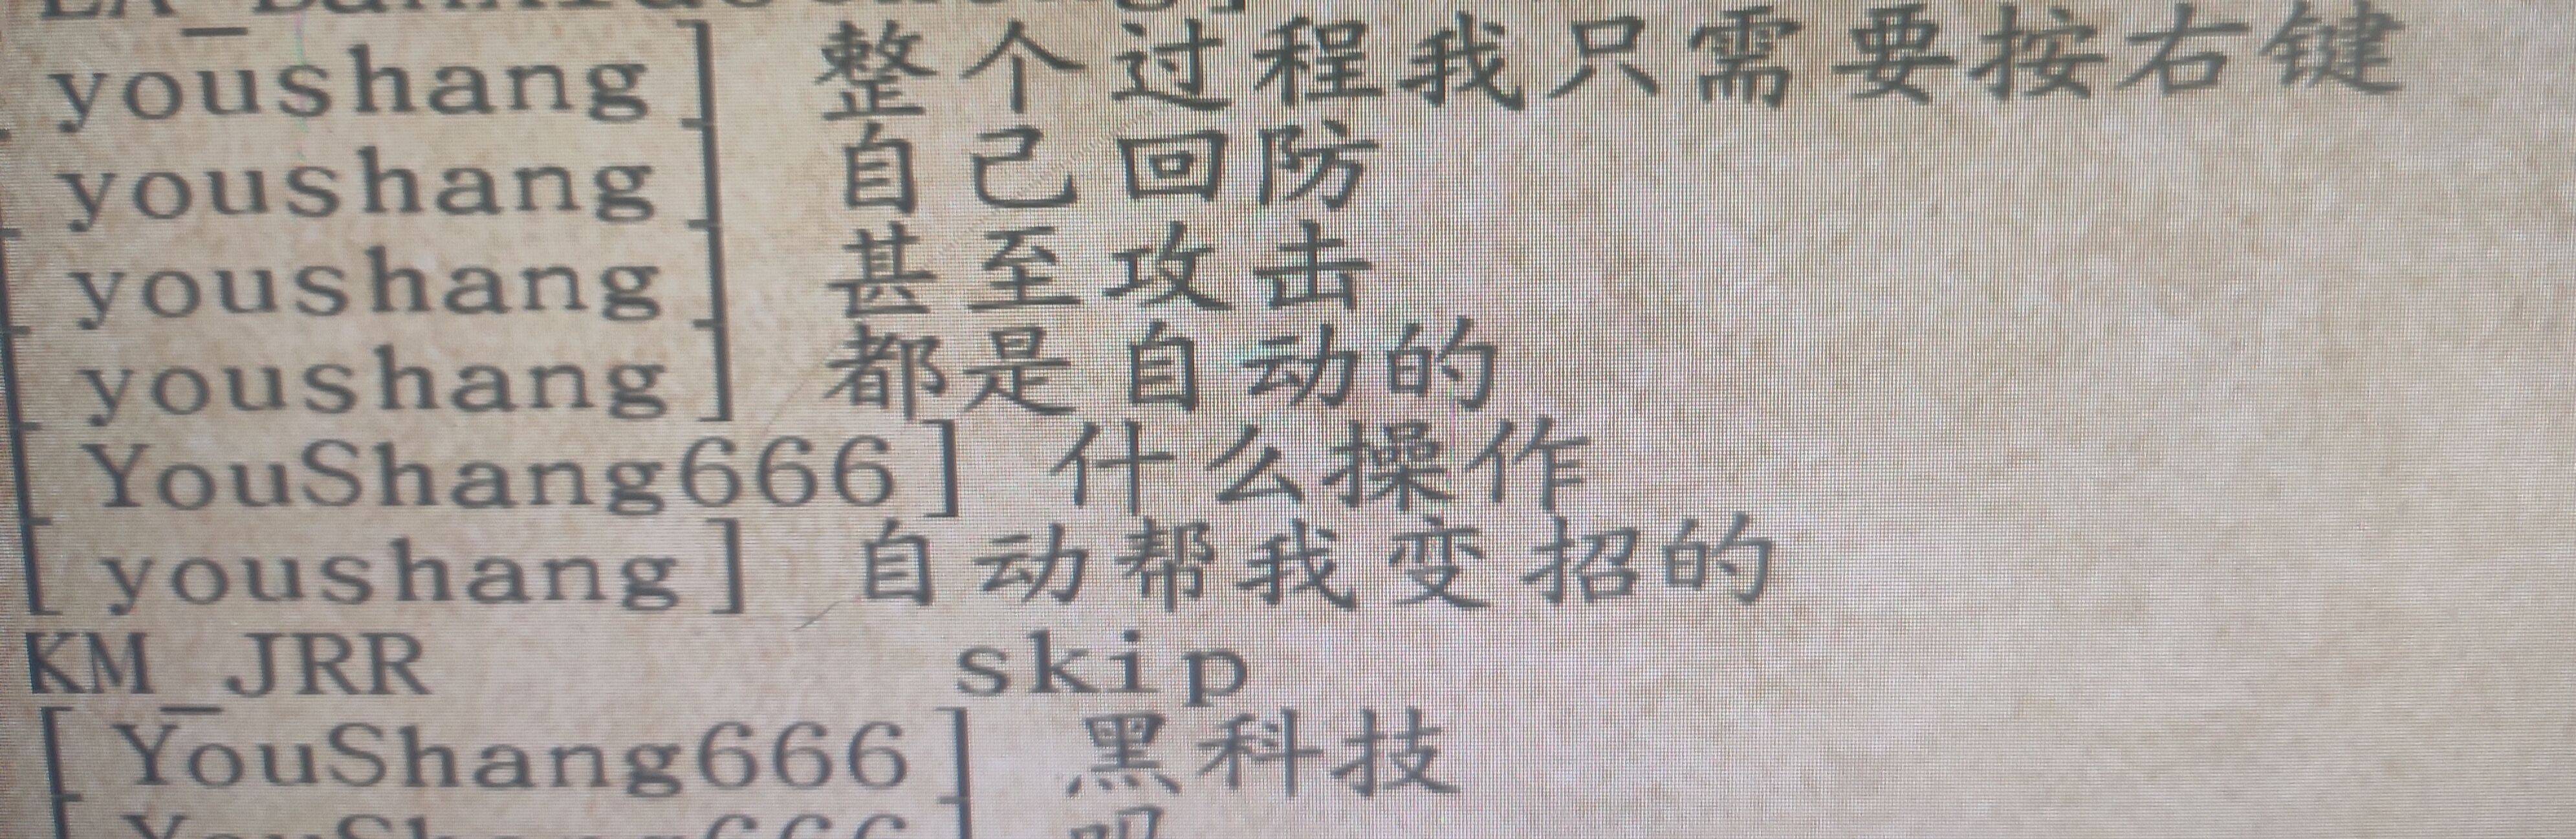 youshang] 整个过程我只需要按右键
youshang] 自己回防
youshang] 甚至攻击
youshang] 都是自动的
[YouShang666] 什么操作
[youshang] 自动帮我变招的
KM_JRR skip
[YouShang666] 黑科技